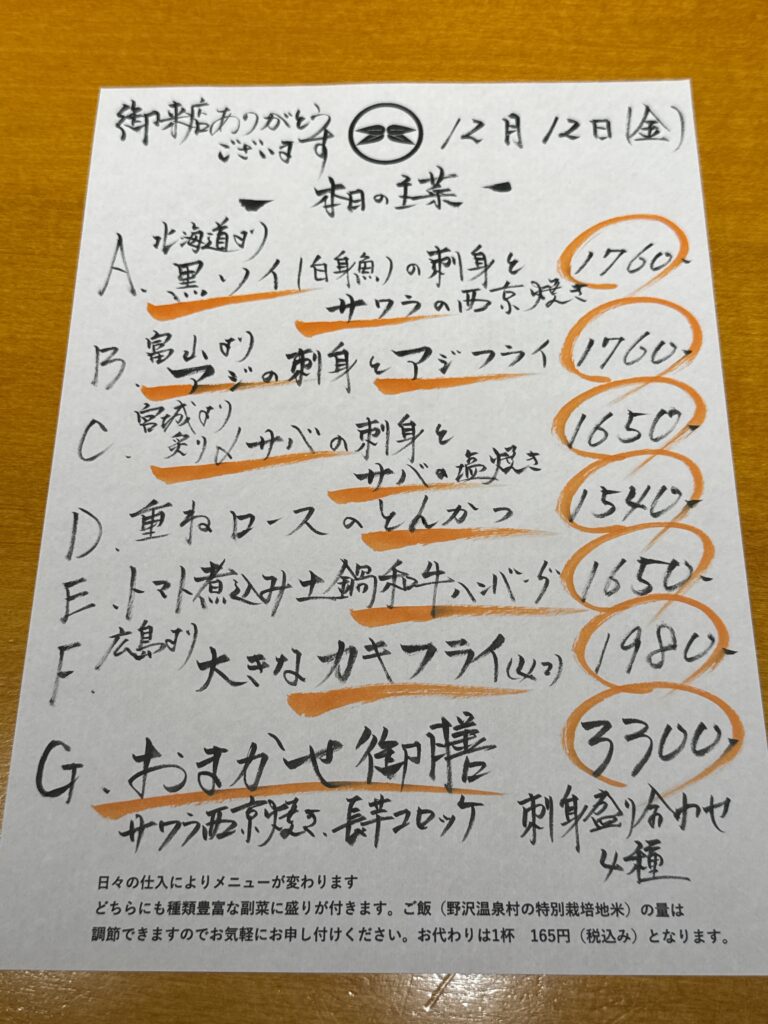 御来店ありがとう
ございます
12月12日(金)
本日の主菜
A. 北海道より
黒ソイ(白身魚)の刺身と
サワラの西京焼き
1760-
B. 富山より
アジの刺身とアジフライ
1760-
C. 宮城より
炙り〆サバの刺身と
サバの塩焼き
1650-
D. 重ねロースのとんかつ
1540-
E. トマト煮込み土鍋和牛ハンバーグ
1650-
F. 広島より
大きなカキフライ(4コ)
1980-
G. おまかせ御膳
3300-
サワラ西京焼き、長芋コロッケ 刺身盛り合わせ
4種
日々の仕入によりメニューが変わります
どちらにも種類豊富な副菜に盛りが付きます。ご飯（野沢温泉村の特別栽培地米）の量は
調節できますのでお気軽にお申し付けください。お代わりは1杯　165円（税込み）となります。